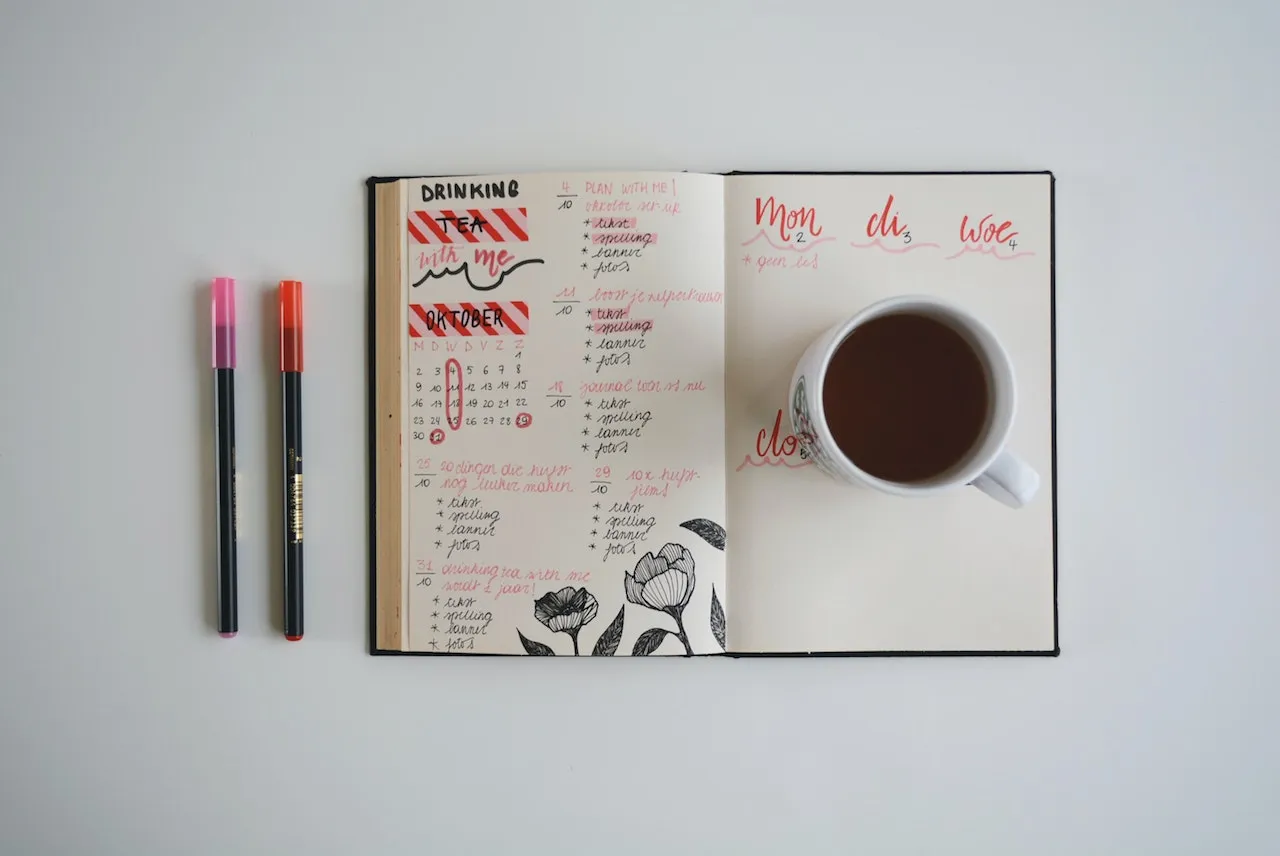 DRINKING
TEA
with me
OKTOBER
M D W D V Z Z
1
2 3 4 5 6 7 8
9 10 11 12 13 14 15
16 17 18 19 20 21 22
23 24 25 26 27 28 29
30 31
4/10 PLAN WITH ME!
oktober set-up
* tekst
* spelling
* banner
* foto's
11/10 boost je zelfvertrouwen
* tekst
* spelling
* banner
* foto's
18/10 journal
* tekst
* spelling
* banner
* foto's
25/10 20 dingen die herfst
nog leuker maken
* tekst
* spelling
* banner
* foto's
29/10 10x herfst-
* tekst
* spelling
* banner
* foto's
31/10 drinking tea with me
wordt 2 jaar!
* tekst
* spelling
* banner
* foto's
Mon 2
* geen les
di 3
woe 4
do 5